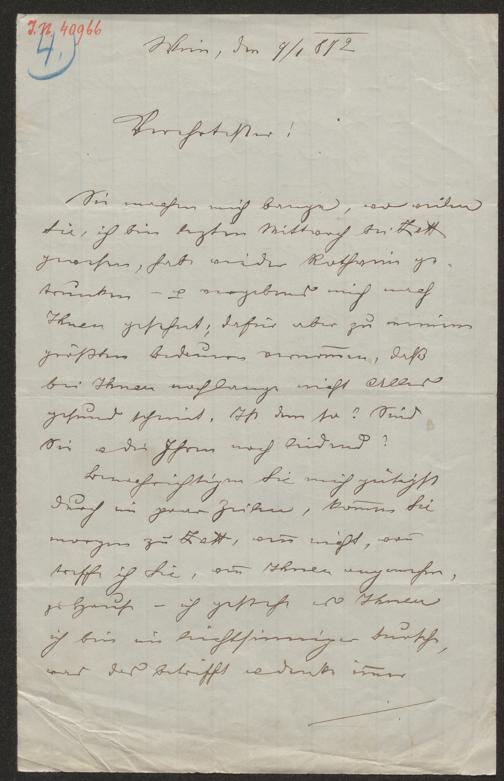 I.N. 40966
4.
Wien, den 9/1 882
Verehrtester!
Sie machen mich bange, wo
Sie, ich bin letzten Mittwoch bei
gewesen, habe wieder Rothwein ge-
trunken – vergebens mich nach
Ihnen gesehnt; dafür aber zu meinem
größten Bedauern vernommen, daß
bei Ihnen noch lange nicht Alles
gesund scheint. Ist dem so? Sind
Sie oder Ihren noch leidend?
Benachrichtigen Sie mich gütigst
durch ein paar Zeilen, kommen Sie
morgen zu, wenn nicht, wann
treffe ich Sie, wenn Ihnen angenehm,
zu Hause – ich gestehe es Ihnen
ich bin ein leichtsinniger Bursche,
was das betrifft u denke immer